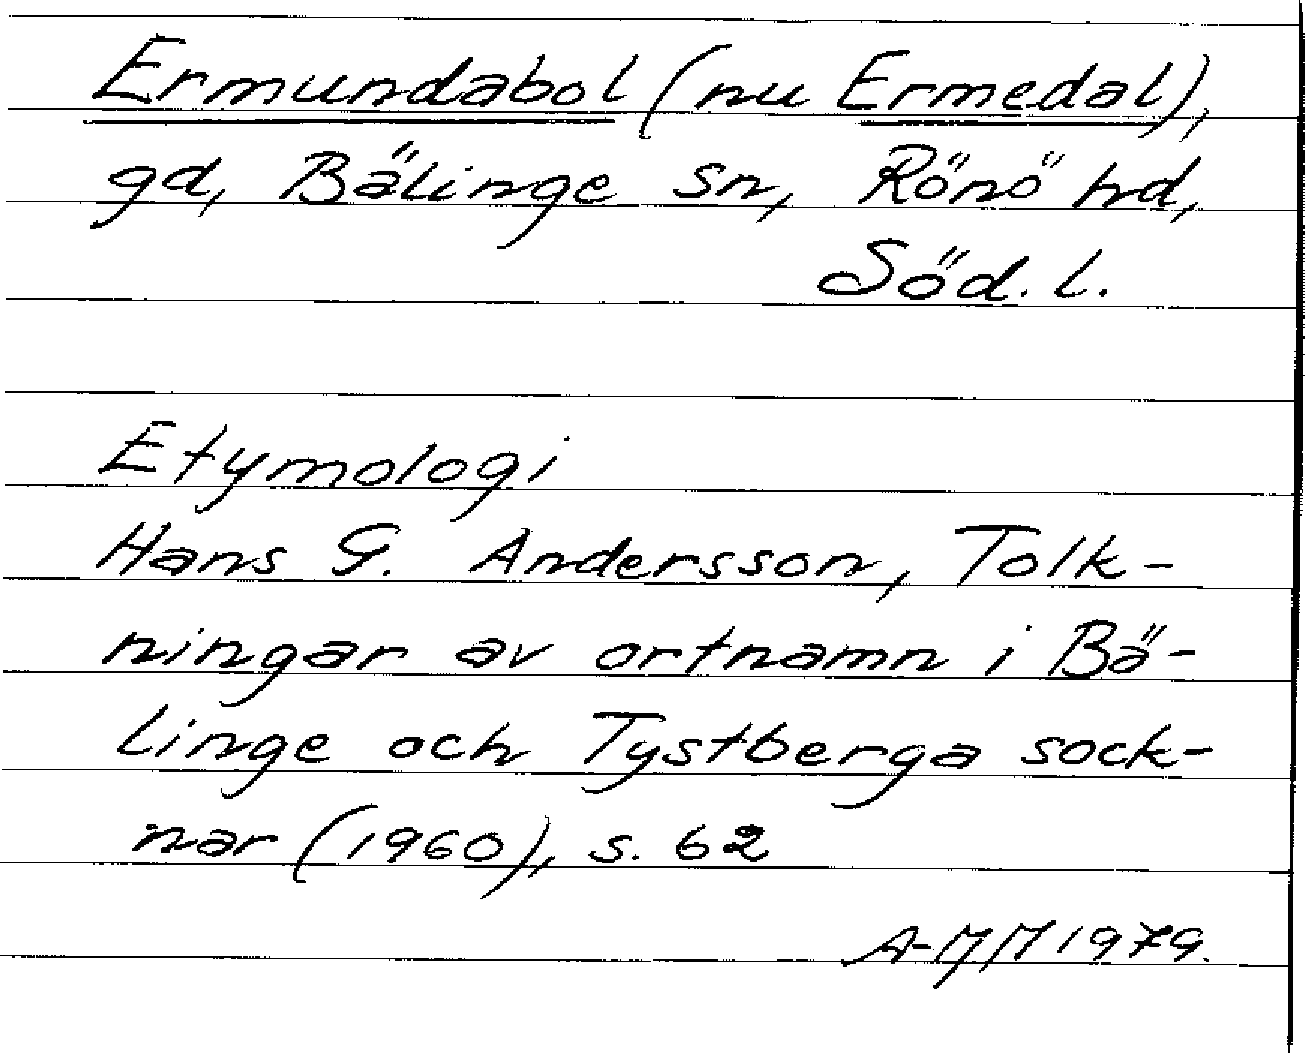 Ermundabol (nu Ermedal),
gd, Bälinge sn, Rönö hd,
Söd. l.
Etymologi
Hans G. Andersson, Tolk-
ningar av ortnamn i Bä-
linge och Tystberga sock-
nar (1960), s. 62
A-MM 1979.